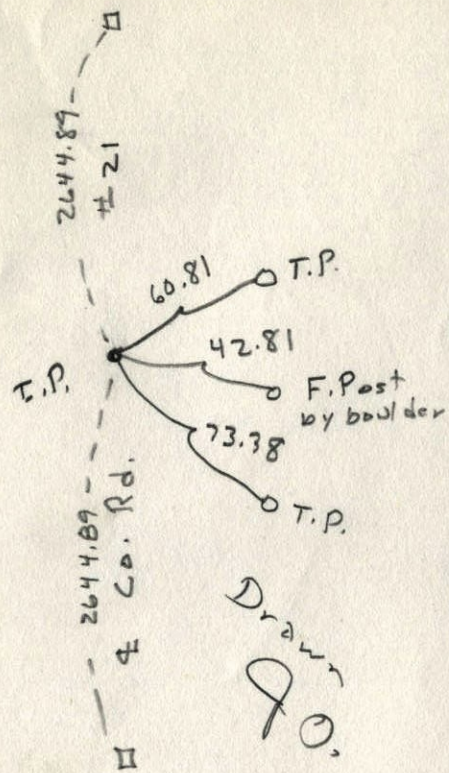 2644.89
# 21
60.81
T.P.
42.81
I.P.
F.Post
by boulder
73.38
T.P.
2644.89
Co. Rd.
Drawn
J.O.